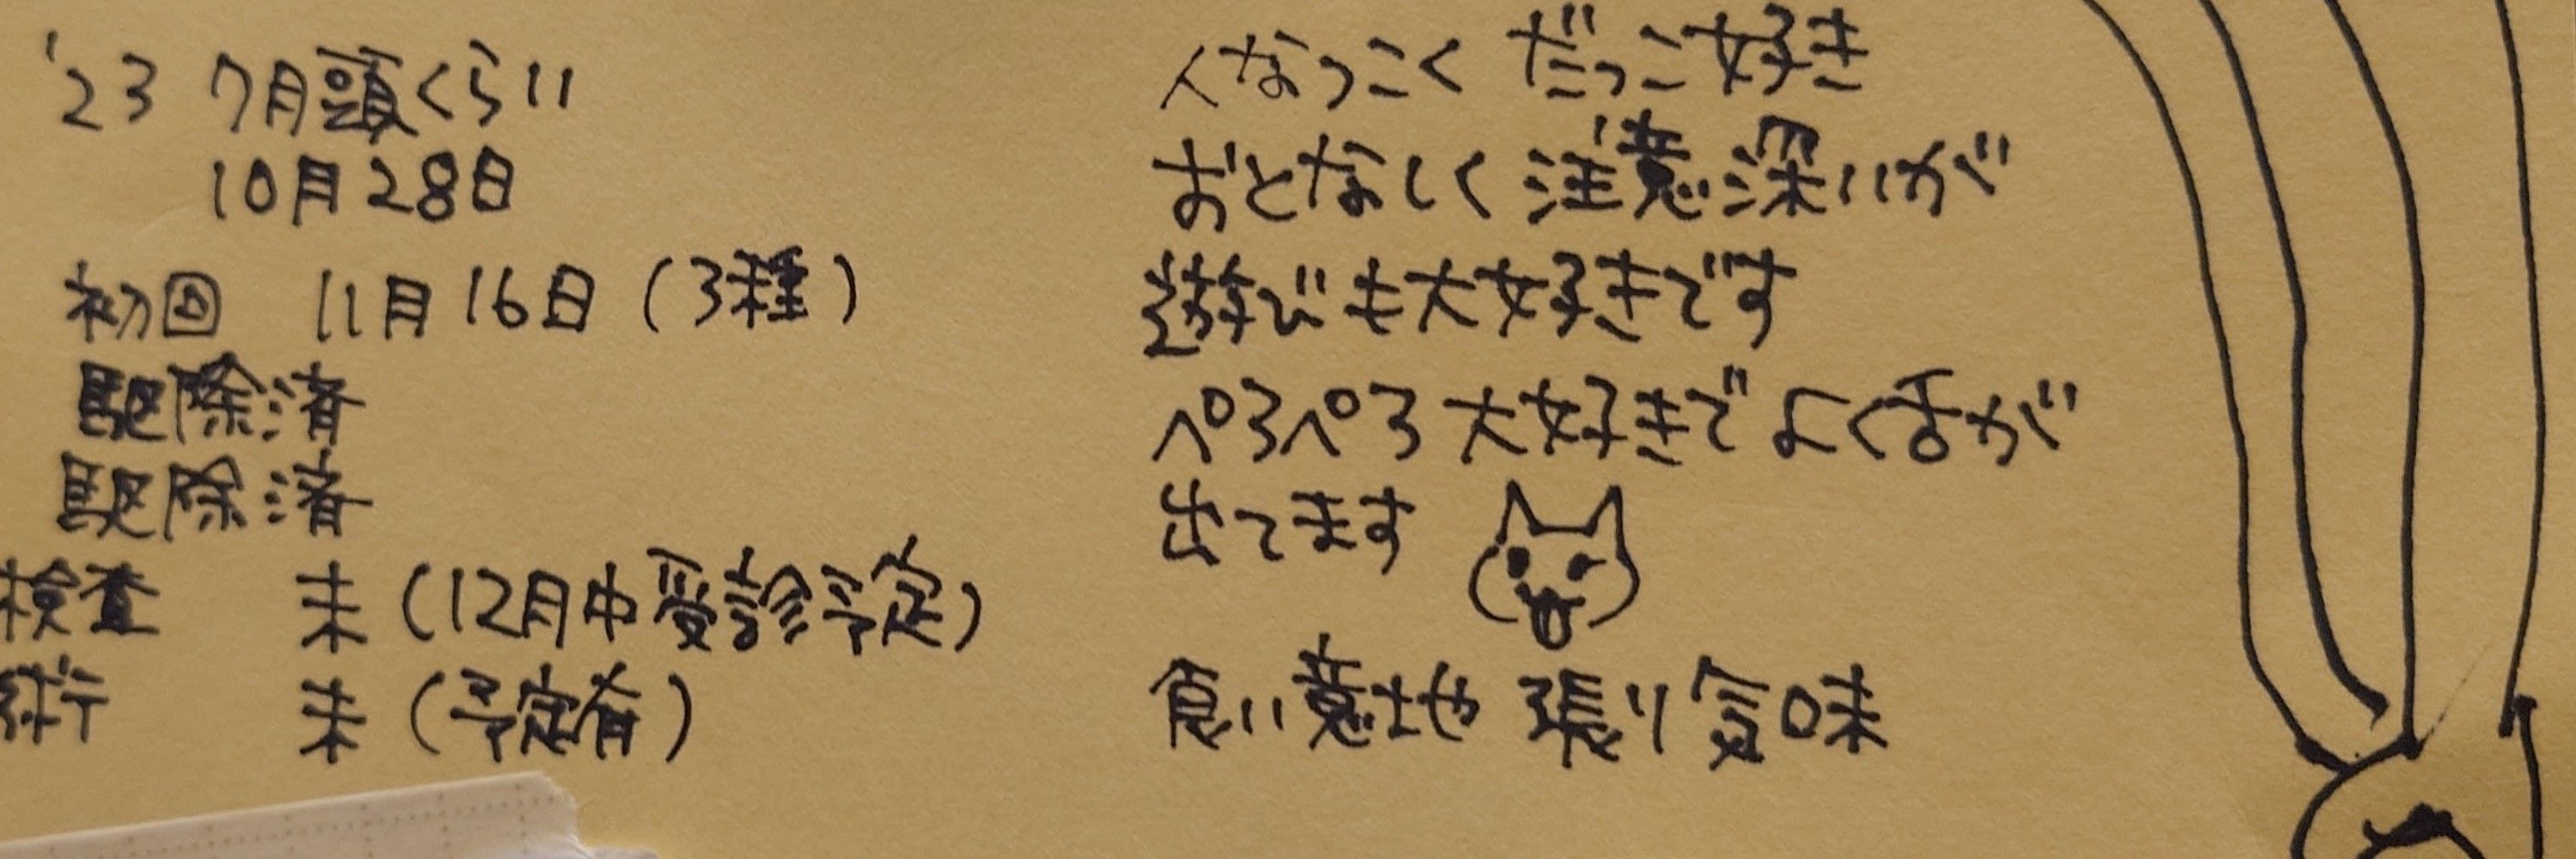 '23 7月頭くらい
10月28日
初回 11月16日(3種)
駆除済
駆除済
検査 未(12月中受診予定)
術 未(予定有)
人なつこく だっこ好き
おとなしく 注意深いが
遊びも大好きです
ペろペろ 大好きで よく舌が
出てます
食い意地 張り気味